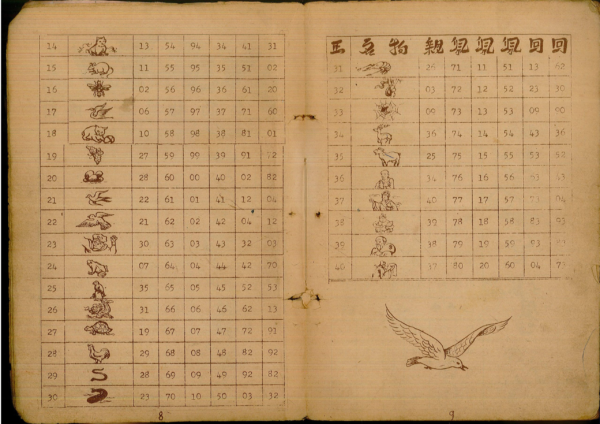 14 13 54 94 34 41 31
15 11 55 95 35 51 02
16 02 56 96 36 61 20
17 06 57 97 37 71 60
18 10 58 98 38 81 01
19 27 59 99 39 91
20 28 60 00 40 02 82
21 22 61 01 41 12 04
22 21 62 02 42 04 12
23 30 63 03 43 32 03
24 07 64 04 44 42 70
25 35 65 05 45 52 53
26 31 66 06 46 62 13
27 19 67 07 47 72 91
28 29 68 08 48 82 92
29 28 69 09 49 92 82
30 23 70 10 50 03 32
8
物 親 回 回
31 26 71 11 51 13 62
32 03 72 12 52 23 30
33 09 73 13 53 09 90
34 36 74 14 54 43 36
35 25 75 15 55 53
36 34 76 16 56 63
37 40 77 17 57 04
38 39 78 18 58 83 93
39 38 79 19 59 93
40 37 80 20 60 04
9